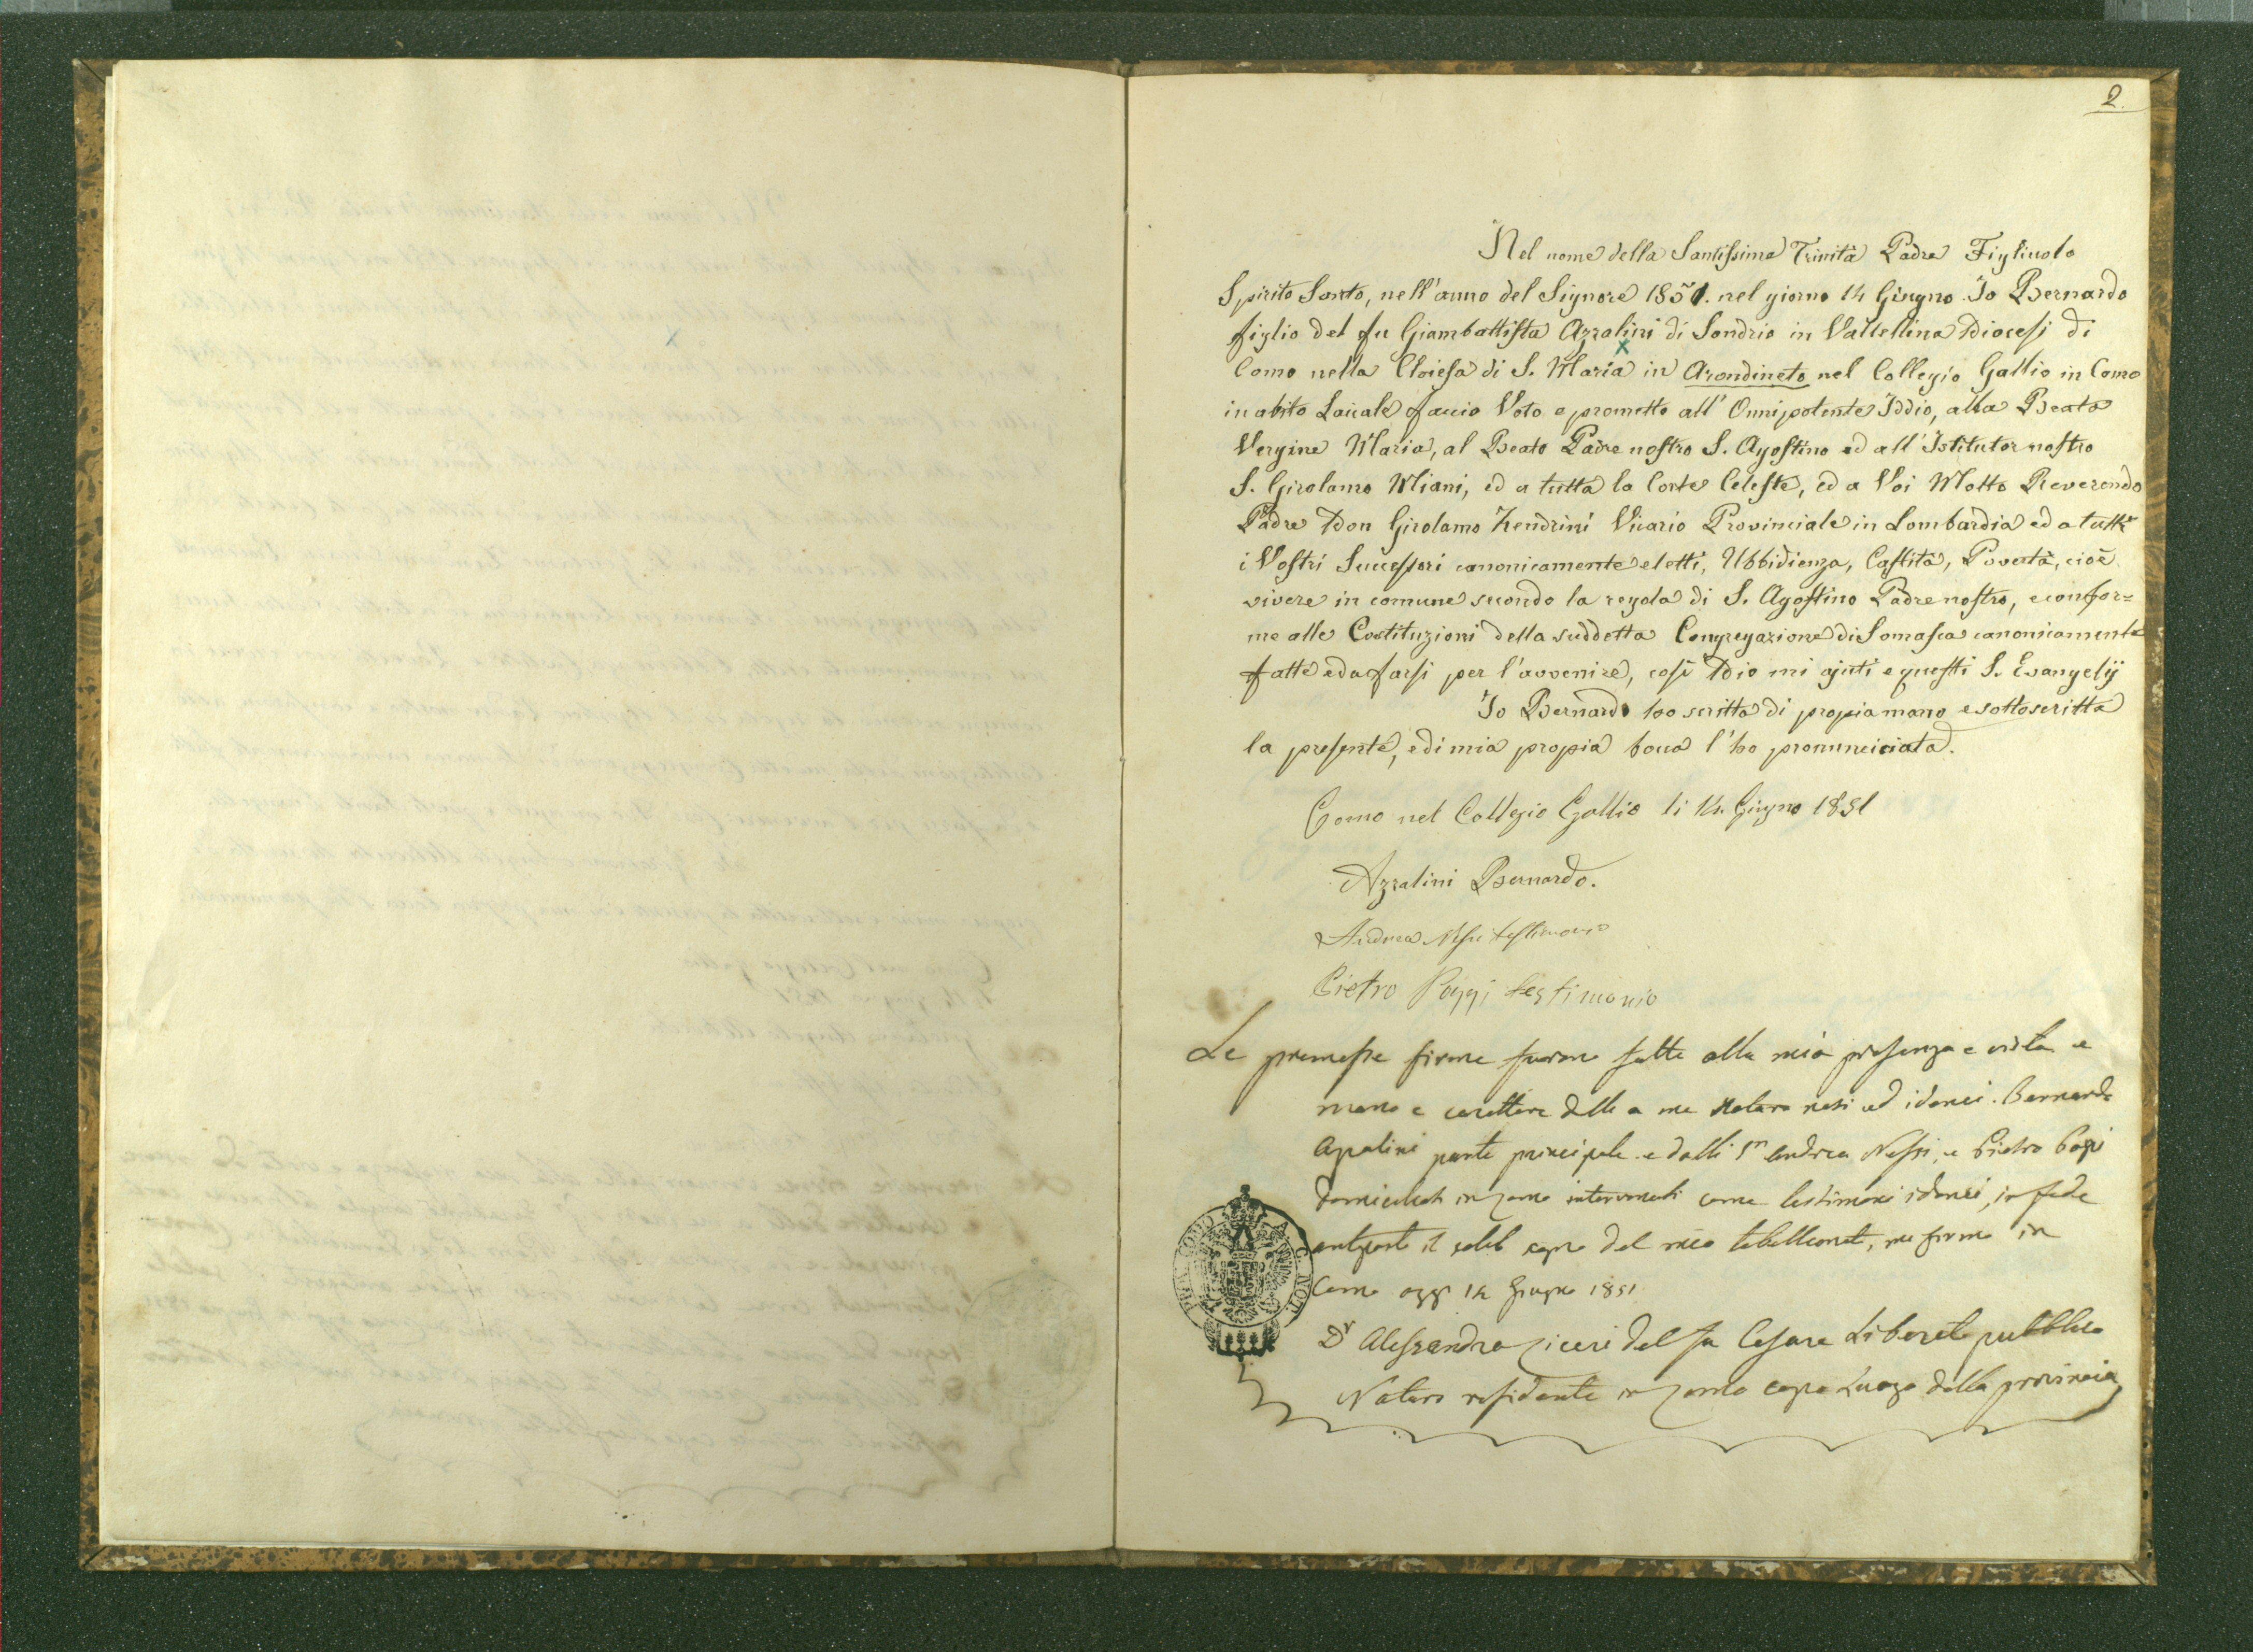 2.
Nel nome della Santissima Trinità Padre Figliuolo
Spirito Santo, nell'anno del Signore 1851. nel giorno 14 Giugno. Io Bernardo
figlio del fu Giambattista Azzalini di Sondrio in Valtellina Diocesi di
Como nella Chiesa di S. Maria in Arondineto nel Collegio Gallio in Como
in abito Laicale faccio Voto e prometto all' Onnipotente Iddio, alla Beata
Vergine Maria, al Beato Padre nostro S. Agostino ed all' Istitutor nostro
S. Girolamo Miani, ed a tutta la Corte Celeste, ed a Voi Molto Reverendo
Padre Don Girolamo Zendrini Vicario Provinciale in Lombardia ed a tutti
i Vostri Successori canonicamente eletti, Ubbidienza, Castità, Povertà, cioè
vivere in comune secondo la regola di S. Agostino Padre nostro, e confor=
me alle Costituzioni della suddetta Congregazione di Somasca canonicamente
fatte ed a farsi per l'avvenire, così Dio mi ajuti e questi S. Evangelij
Io Bernardo ho scritta di propia mano e sottoscritta
la presente, e di mia propia bocca l'ho pronunciciata.
Como nel Collegio Gallio li 14. Giugno 1851
Azzalini Bernardo.
Andrea Nessi testimonio
Pietro Poggi testimonio
Le premesse firme furono fatte alla mia presenza e vista e
mano e carattere delli a me Notaro noti ed idonei. Bernardo
Azzalini parte principale e dalli Sri Andrea Nessi, e Pietro Poggi
domiciliati in Como intervenuti come testimoni idonei, in fede
anteposto il solito segno del mio tabellionato, mi firmo in
Como oggi 14 Giugno 1851
Dr Alessandro del fu Cesare Liberato pubblico
Notaro residente in Como capo Luogo della provincia